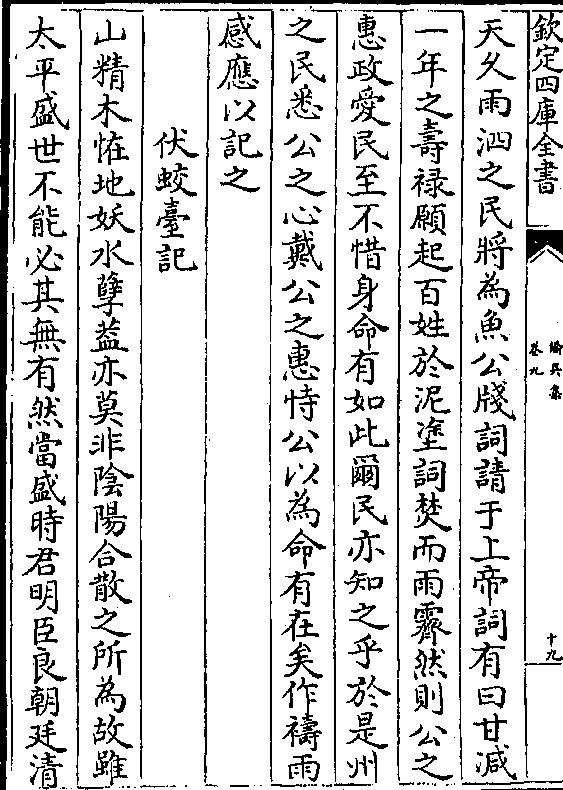 欽定四庫全書
僑吳集
卷九
十九
天久雨泗之民將為魚公牋詞請于上帝詞有曰甘減
一年之壽禄願起百姓於泥塗詞焚而雨霽然則公之
惠政愛民至不惜身命有如此爾民亦知之乎於是州
之民悉公之心戴公之惠恃公以為命有在矣作禱雨
感應以記之
伏蛟臺記
山精木恠地妖水孽葢亦莫非陰陽合散之所為故雖
太平盛世不能必其無有然當盛時君明臣良朝廷清